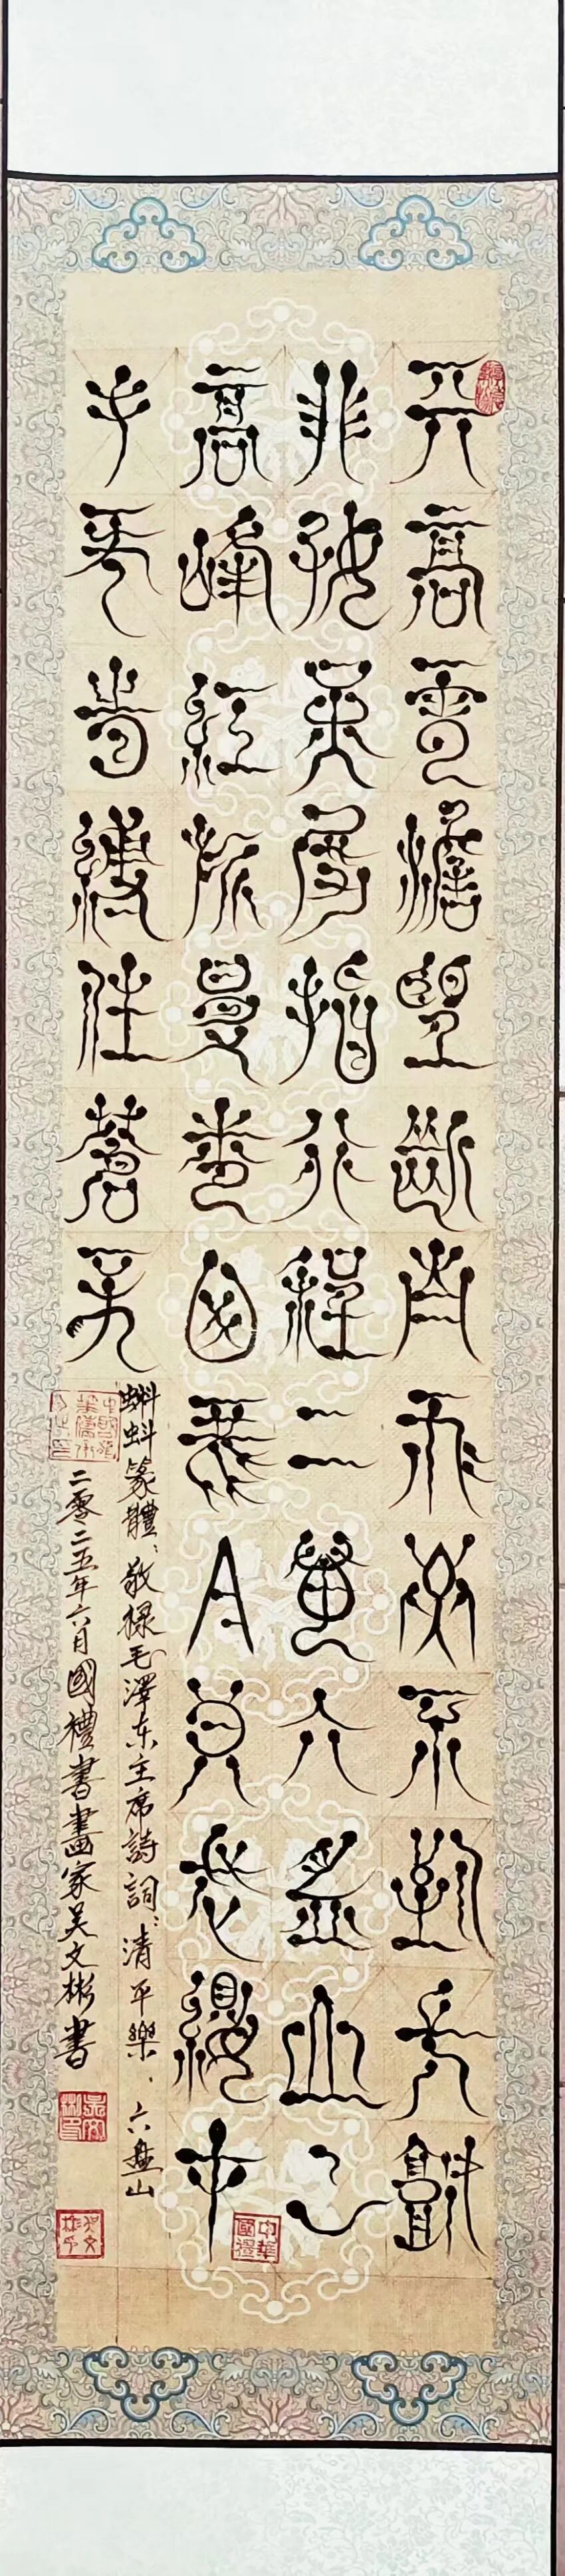 天高雲澹望斷南飛雁不到長城
非好漢屈指行程二萬六盤山上
高峰紅旗漫卷西風今日長纓在
手何時縛住蒼龍
蝌蚪篆體：敬録毛澤东主席詩詞：清平樂、六盤山
二零二五年六月國禮書畫家吴文彬書
中華國禮